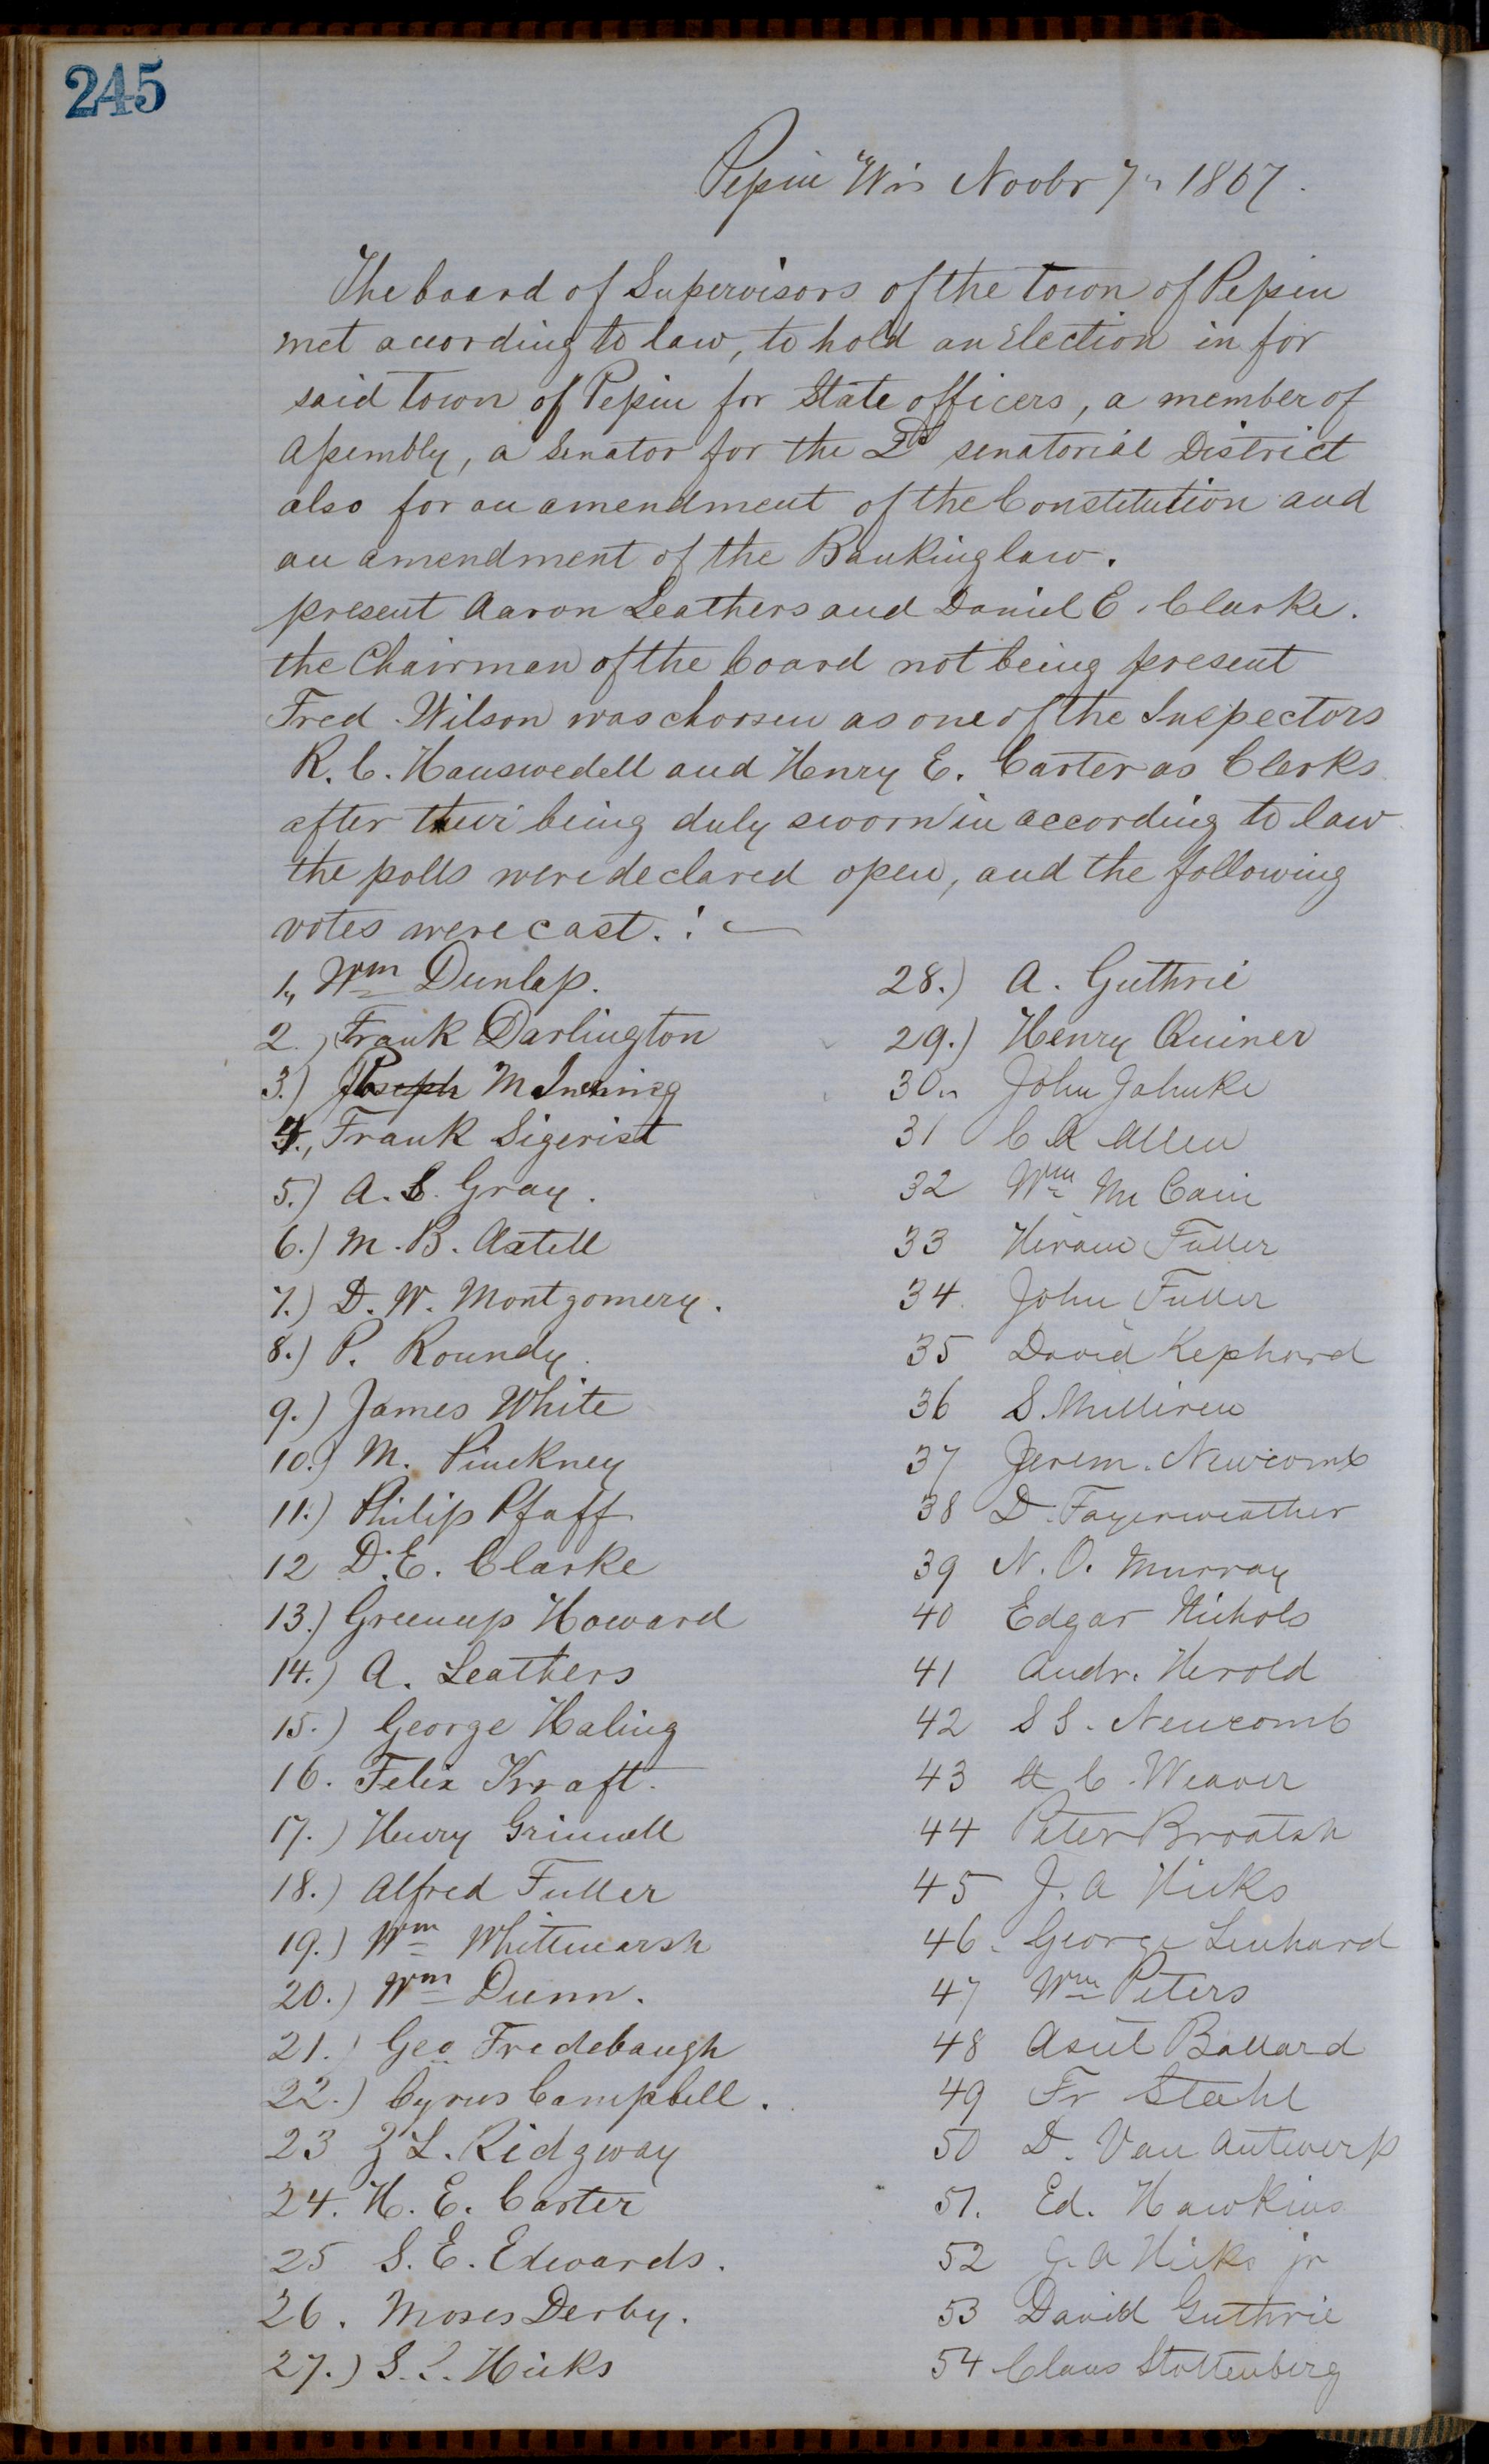 245
Pepin Wis Novbr 7" 1867.
The board of Supervisors of the town of Pepin
met according to law, to hold an Election in for
said town of Pepin for State officers, a member of
Assembly, a Senator for the 2d senatorial District
also for an amendment of the Constitution and
an amendment of the Banking law.
present Aaron Leathers and Daniel E. Clarke.
the Chairman of the board not being present
Fred Wilson was choosen as one of the Inspectors
R. C. Hauswedell and Henry E. Carter as Clerks
after their being duly sworn in according to law
the polls were declared open, and the following
votes were cast. : —
1,, Wm Dunlap.
2.) Frank Darlington
3.) Joseph
4., Frank Sigerist
5.) A. S. Gray.
6.) M. B. Axtell
7.) D. W. Montgomery.
8.) P. Roundy.
9.) James White
10.) M. Pinckney
11.) Philip Pfaff
12 D. E. Clarke
13.) Greenup Howard
14.) A. Leathers
15.) George Haling
16. Felix Kraft.
17.) Henry Grinnell
18.) Alfred Fuller
19.) Wm Whitmarsh
20.) Wm Dunn.
21.) Geo Fredebaugh
22.) Cyrus Campbell.
23 Z L. Ridgway
24. H. E. Carter
25 S. E. Edwards.
26. Moses Derby.
27.) S. L. Hicks
28.) A. Guthrie
29.) Henry Quiner
30.. John Jahnke
31 C R Allen
32 Wm Mc Cain
33 Hiram Fuller
34. John Fuller
35 David Kephard
36 S. Milliren
37 Jerem. Newcomb
38 D. Fayerweather
39 N. O. Murray
40 Edgar Nichols
41 Andr. Herold
42 S S. Newcomb
43 C. Weaver
44 Peter Broatsh
45 J. A Hicks
46. George Lenhard
47 Wm Peters
48 Asiel Ballard
49 Fr Stahl
50 D. Van Antwerp
51. Ed. Hawkins
52 A Hicks jr
53 David Guthrie
54 Claus Stoltenberg